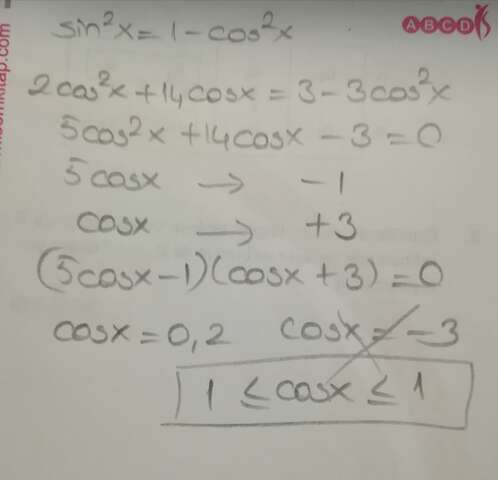 sin²x = 1 - cos²x
ABCD
2cos²x + 14cosx = 3 - 3cos²x
5cos²x + 14cosx - 3 = 0
5cosx → -1
cosx → +3
(5cosx - 1)(cosx + 3) = 0
cosx = 0,2 cosx = -3
1 ≤ cosx ≤ 1